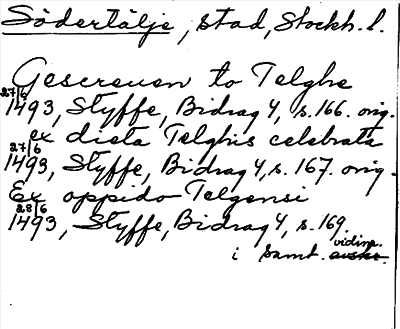 Södertälje, stad, Stockh. l.
Gescreuen to Telghe
27/6 1493, Styffe, Bidrag 4, s. 166. orig.
ex dieta Telghis celebrata
27/6 1493, Styffe, Bidrag 4, s. 167. orig.
Ex oppido Telgensi
28/6 1493, Styffe, Bidrag 4, s. 169.
i samt. vidim.